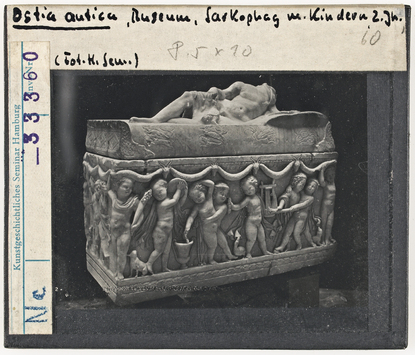 Ostia antica, Museum, Sarkophag m. Kindern 2. Jh.
(Fot. K. Sem.)
8.5 x 10
10
Kunstgeschichtliches Seminar Hamburg
Inv. Nr.
33360